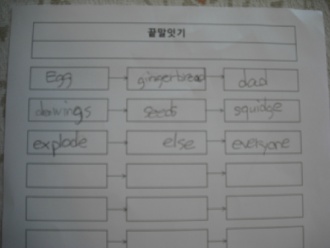 끝말잇기
Egg gingerbread dad
seeds squidge
explode else everyone